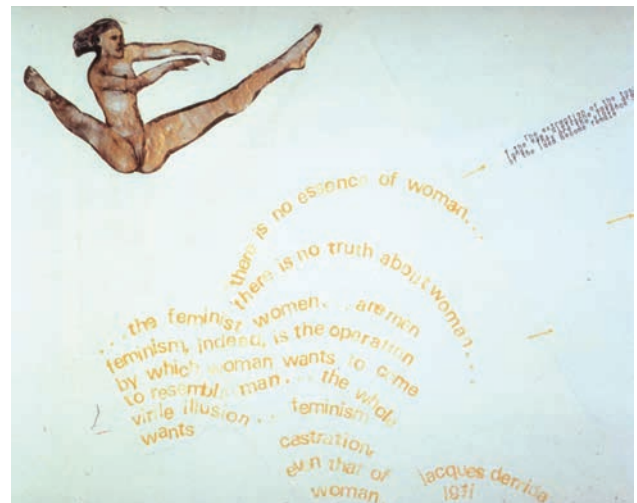 there is no essence of woman...
there is no truth about woman...
...the feminist women... are men
feminism, indeed, is the operation
by which woman wants to come
to resemble man... the whole
virile illusion... feminism
wants
castration,
even that of
woman
jacques derrida